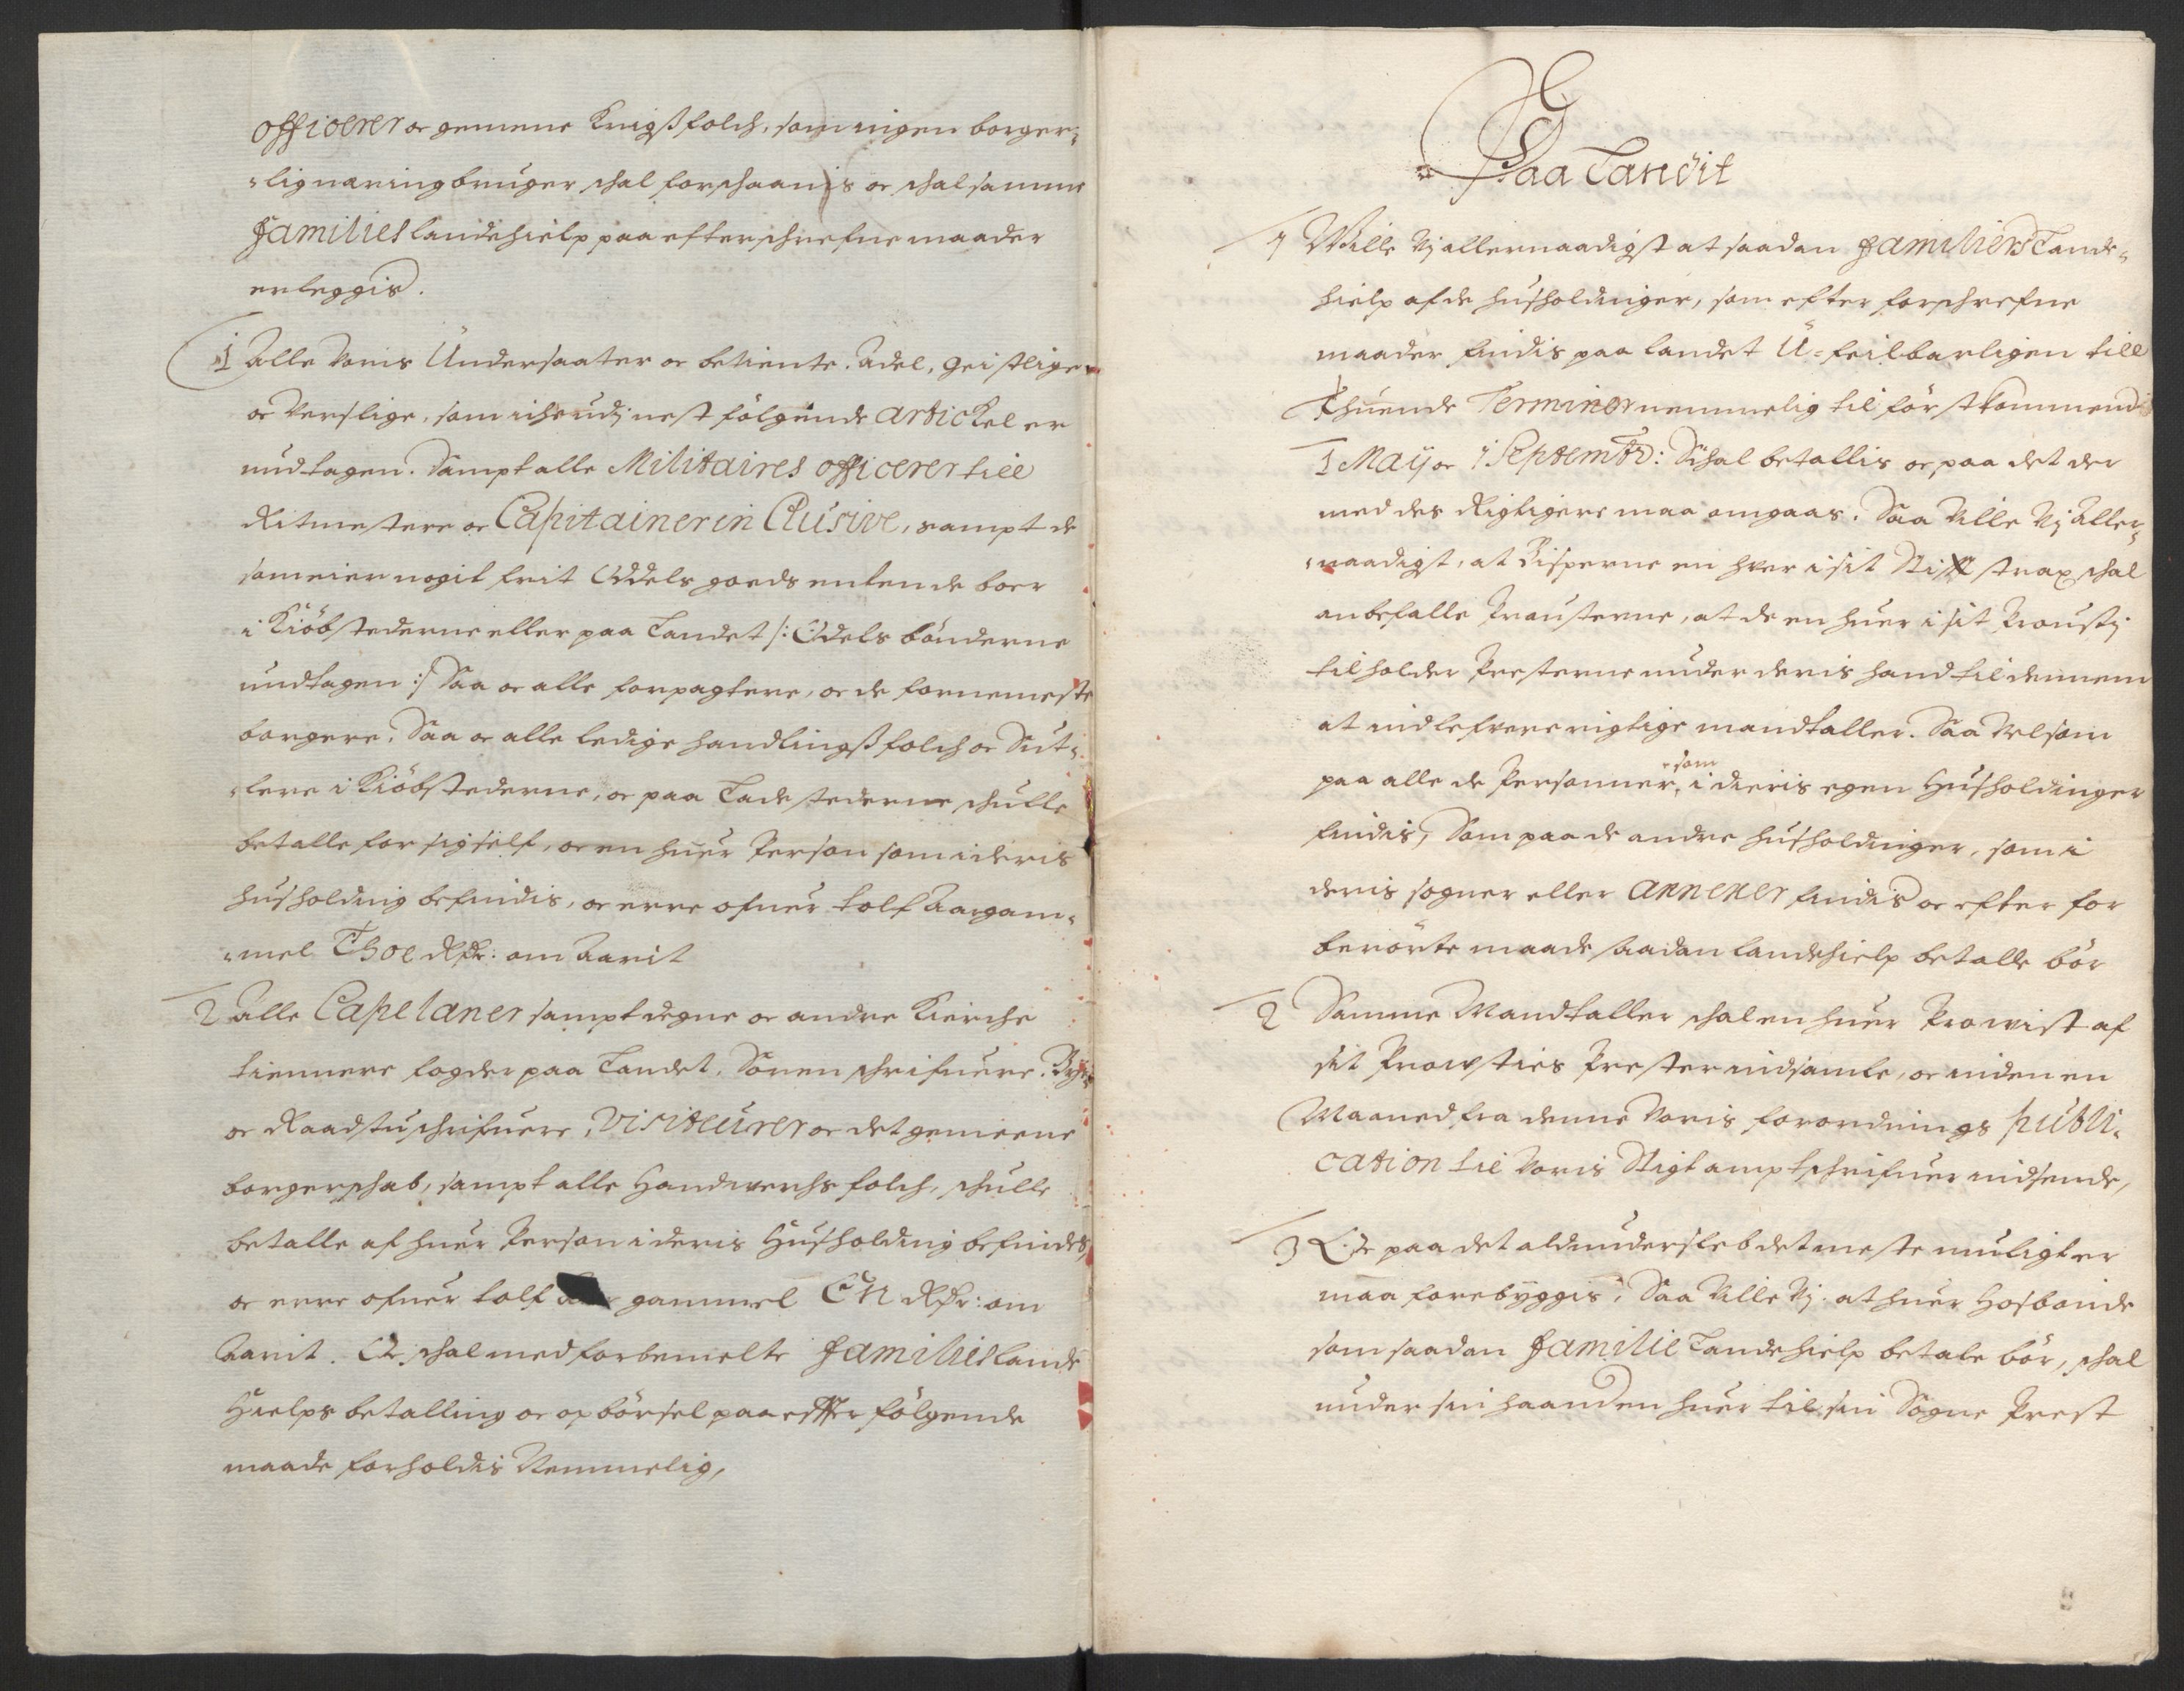 officerer oc gemene Krigsfolch, som ingen borger-
-lig næring bruger schal forschaanis oc schal samme
Families landehielp paa efterschrefne maader
erleggis.
1 Alle Voris Undersaater oc betiente. Adel, Geistlige
oc Verslige, som iche udj nest följende Artickel er
undtagen. Sampt alle Militaires officerer till
Ritmestere oc Capitainer in Clusive, sampt de
som eier nogit frit Oddels goeds enten de boer
i Kiöbstederne eller paa Landet /: Odels bönderne
undtagen :/ Saa oc alle forpagtere, oc de fornemeste
borgere. Saa oc alle ledige handlingsfolch oc Sut-
-lere i Kiöbstederne, oc paa Ladestederne schulle
betalle for sig self, oc en huer Person som i deris
husholding befindis, oc erre ofuer tolf Aar gam-
-mel Thoe Rdr: om Aarit
2 Alle Capelaner sampt degne oc andre Kierche
tiennere fogder paa Landet. Sorenschrifuere. By
oc Raadstuschrifuere, Visiteurer oc det gemeene
borgerschab, sampt alle Handwerchs folch, schulle
betalle af huer Person i deris Husholding befindes
oc erre ofuer tolf gammel En Rdr: om
Aarit. Oc schal med forbemelte Families lande
Hielps betalling oc opbörsel paa efter fölgende
maade forholdis Nemmelig,
Paa Landit
1 Wille Vj allernaadigst at saadan Familiers Lande-
hielp af de husholdinger, som efter forschrefne
maader findis paa landet U-feilbarligen till
Thuende Terminer nemmelig til förstkommende
1 Maij oc 1 Septembr: Schal betallis oc paa det der
med des Rigtigere maa omgaas. Saa Ville Vj Aller-
-naadigst, at Bisperne en hver i sit Stift strax schal
anbefalle Prousterne, at de en huer i sit Proustj
tilholder Presterne under deris hand til dennem
at indlefvere rigtige mandtaller. Saa Vel som
paa alle de Personner, som i dieris egen Husholdinger
findis, Som paa de andre husholdinger, som i
deris sogner eller Annexer findis oc efter for
berörte maade saadan landehielp betalle bör
2 Samme Mandtaller schal en huer Prowist af
sit Prowsties Prester indsamle, oc inden en
Maaned fra denne Voris forordnings publi-
cation til Voris Stigtamptschrifuer indsende,
3 Oc paa det ald undersleb det meste muligt er
maa forebyggis, Saa Ville Vj. at huer Hosbonde
som saadan Familie Landehielp betale bör, schal
under sin haand en huer til sin Sogne Prest